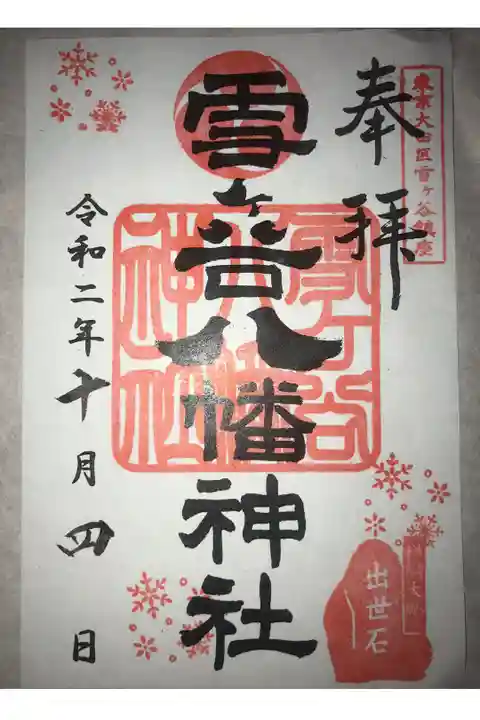 東京大田区雪ヶ谷鎮座
奉拝
雪ヶ谷八幡神社
雪ヶ谷
八幡
神社
令和二年十月四日
出世石